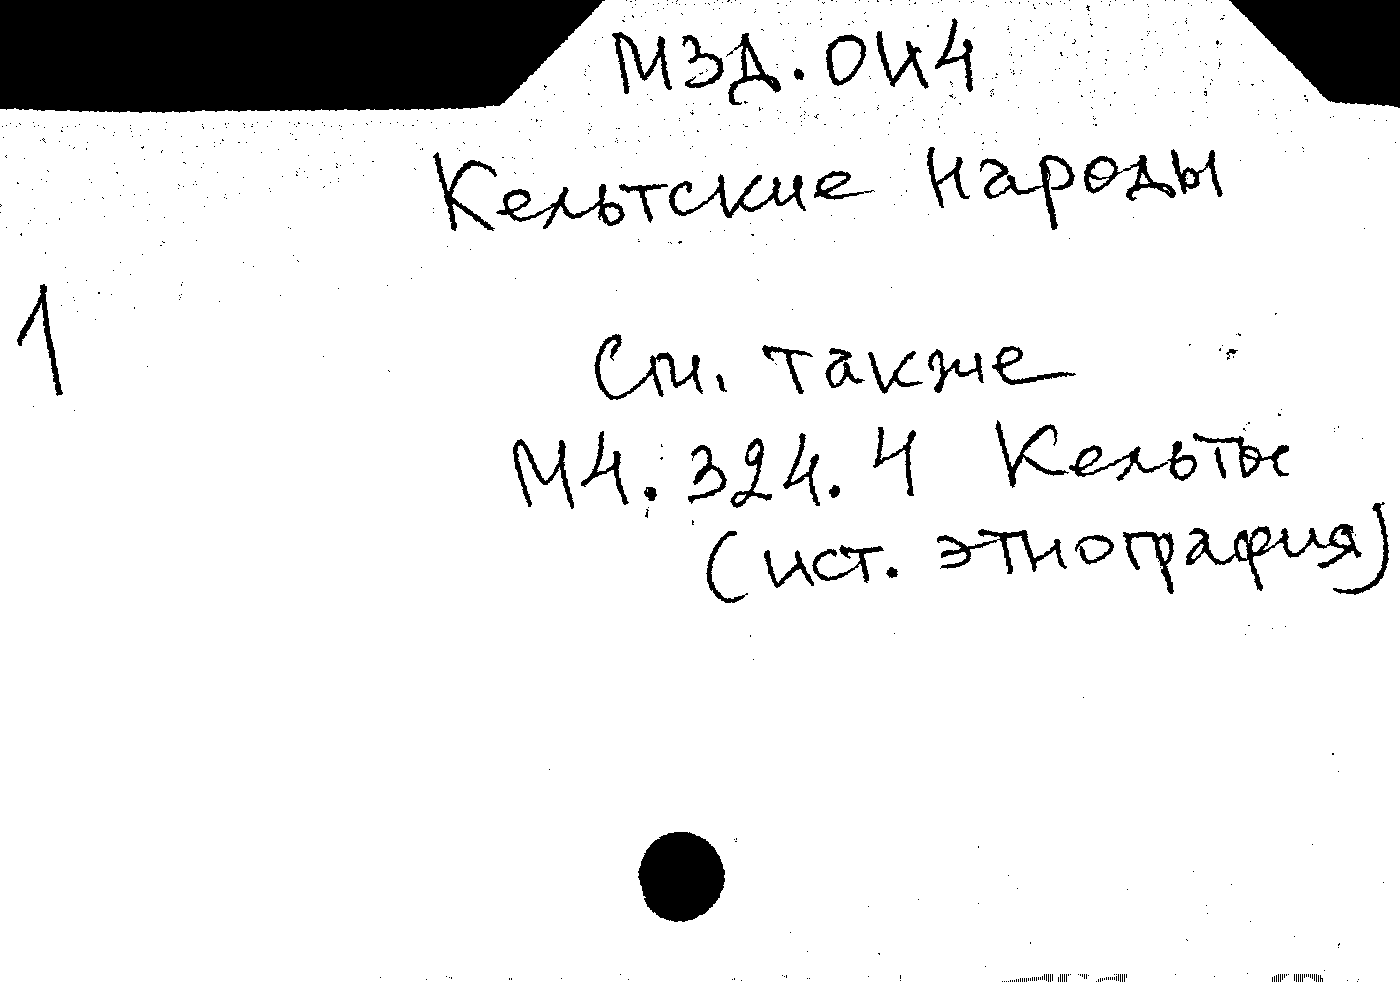 МЗД.ОИ4
Кельтские народы
1
См. также
М4.324.4 Кельты
(ист. этнография)